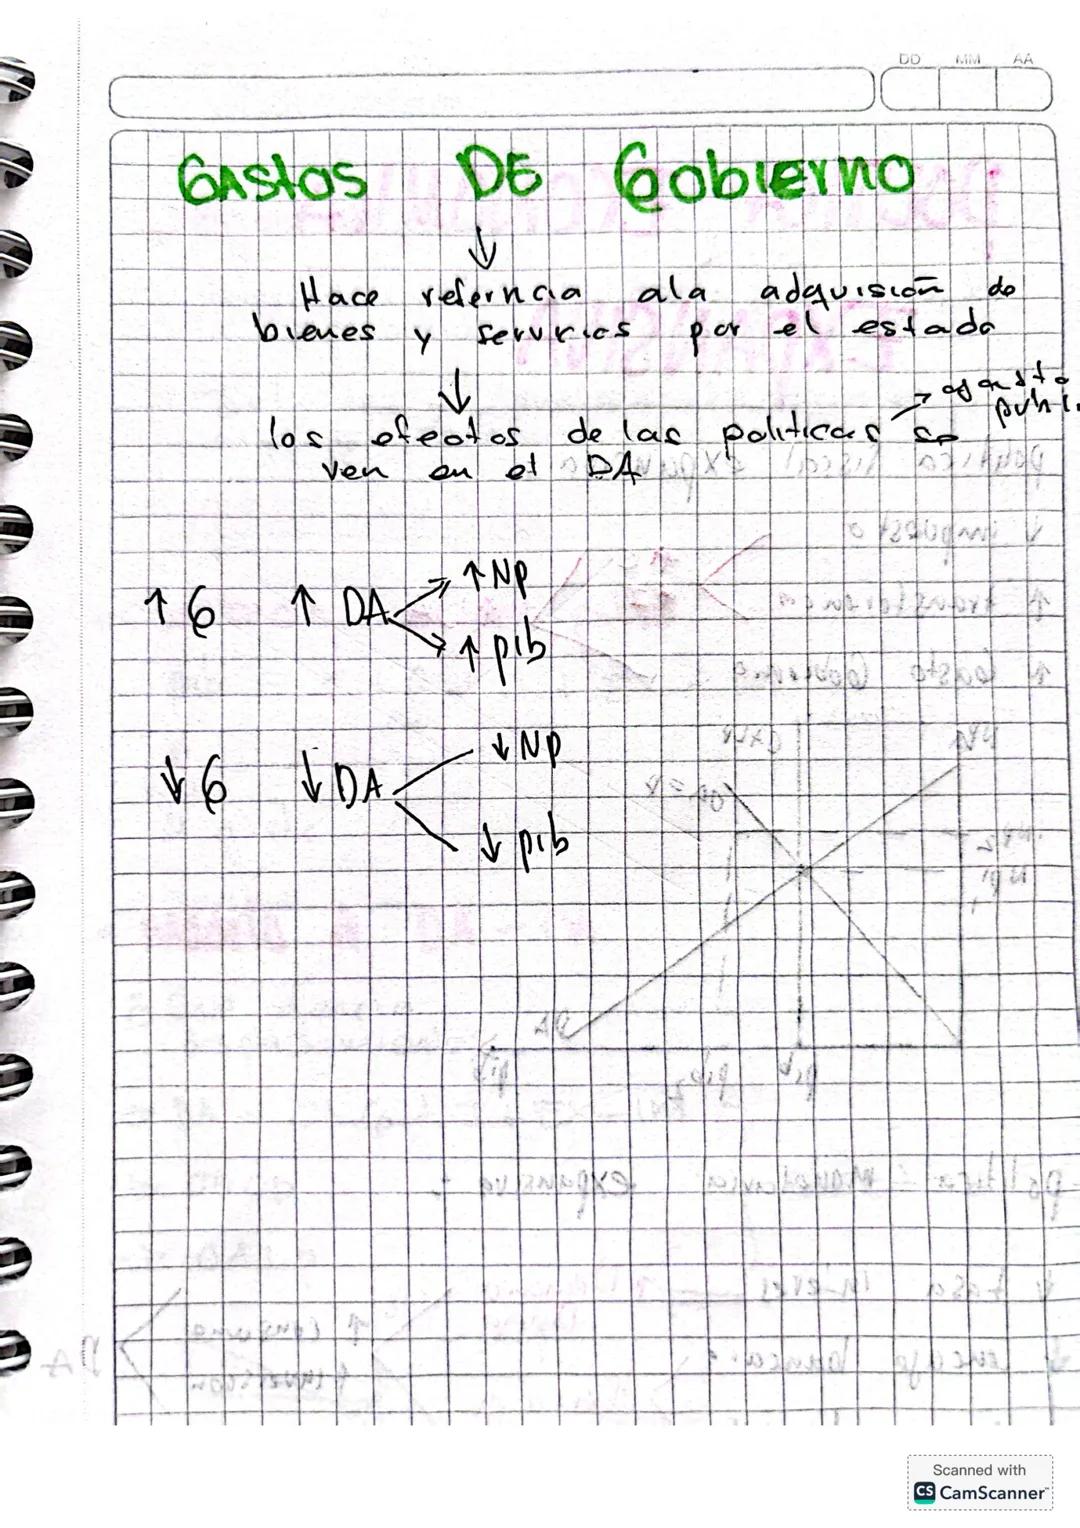 DD MM AA
Gastos DE Gobierno
↓
Hace referncia ala adquisión de
bienes y servicios por el estado
↓
los efectos de las politicas se → gasto
ven en el DA
↑ G ↑ DA → ↑ Np
→ ↑ pib
↓ G ↓ DA ↓ Np
↓ pib
Scanned with
CS CamScanner